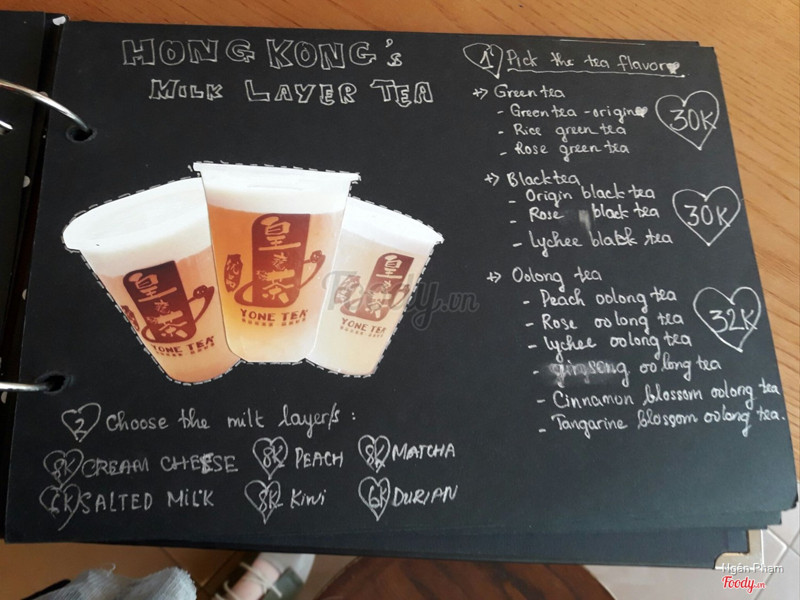 HONG KONG's
MILK LAYER TEA
1 Pick the tea flavor
+> Green tea
- Green tea - origin
- Rice green tea
- Rose green tea
30K
+> Black tea
- Origin black tea
- Rose black tea
- Lychee black tea
30K
+> Oolong tea
- Peach oolong tea
- Rose oolong tea
- lychee oolong tea
- ginseng oolong tea
- Cinnamon blossom oolong tea
- Tangarine blossom oolong tea.
32K
皇茶
YONE TEA
皇茶
YONE TEA
皇茶
YONE TEA
Foody.vn
2 Choose the milt layer/s :
8K CREAM CHEESE 8K PEACH 8K MATCHA
6K SALTED MILK 8K Kiwi 6K DURIAN
Ngân Phạm
Foody.vn